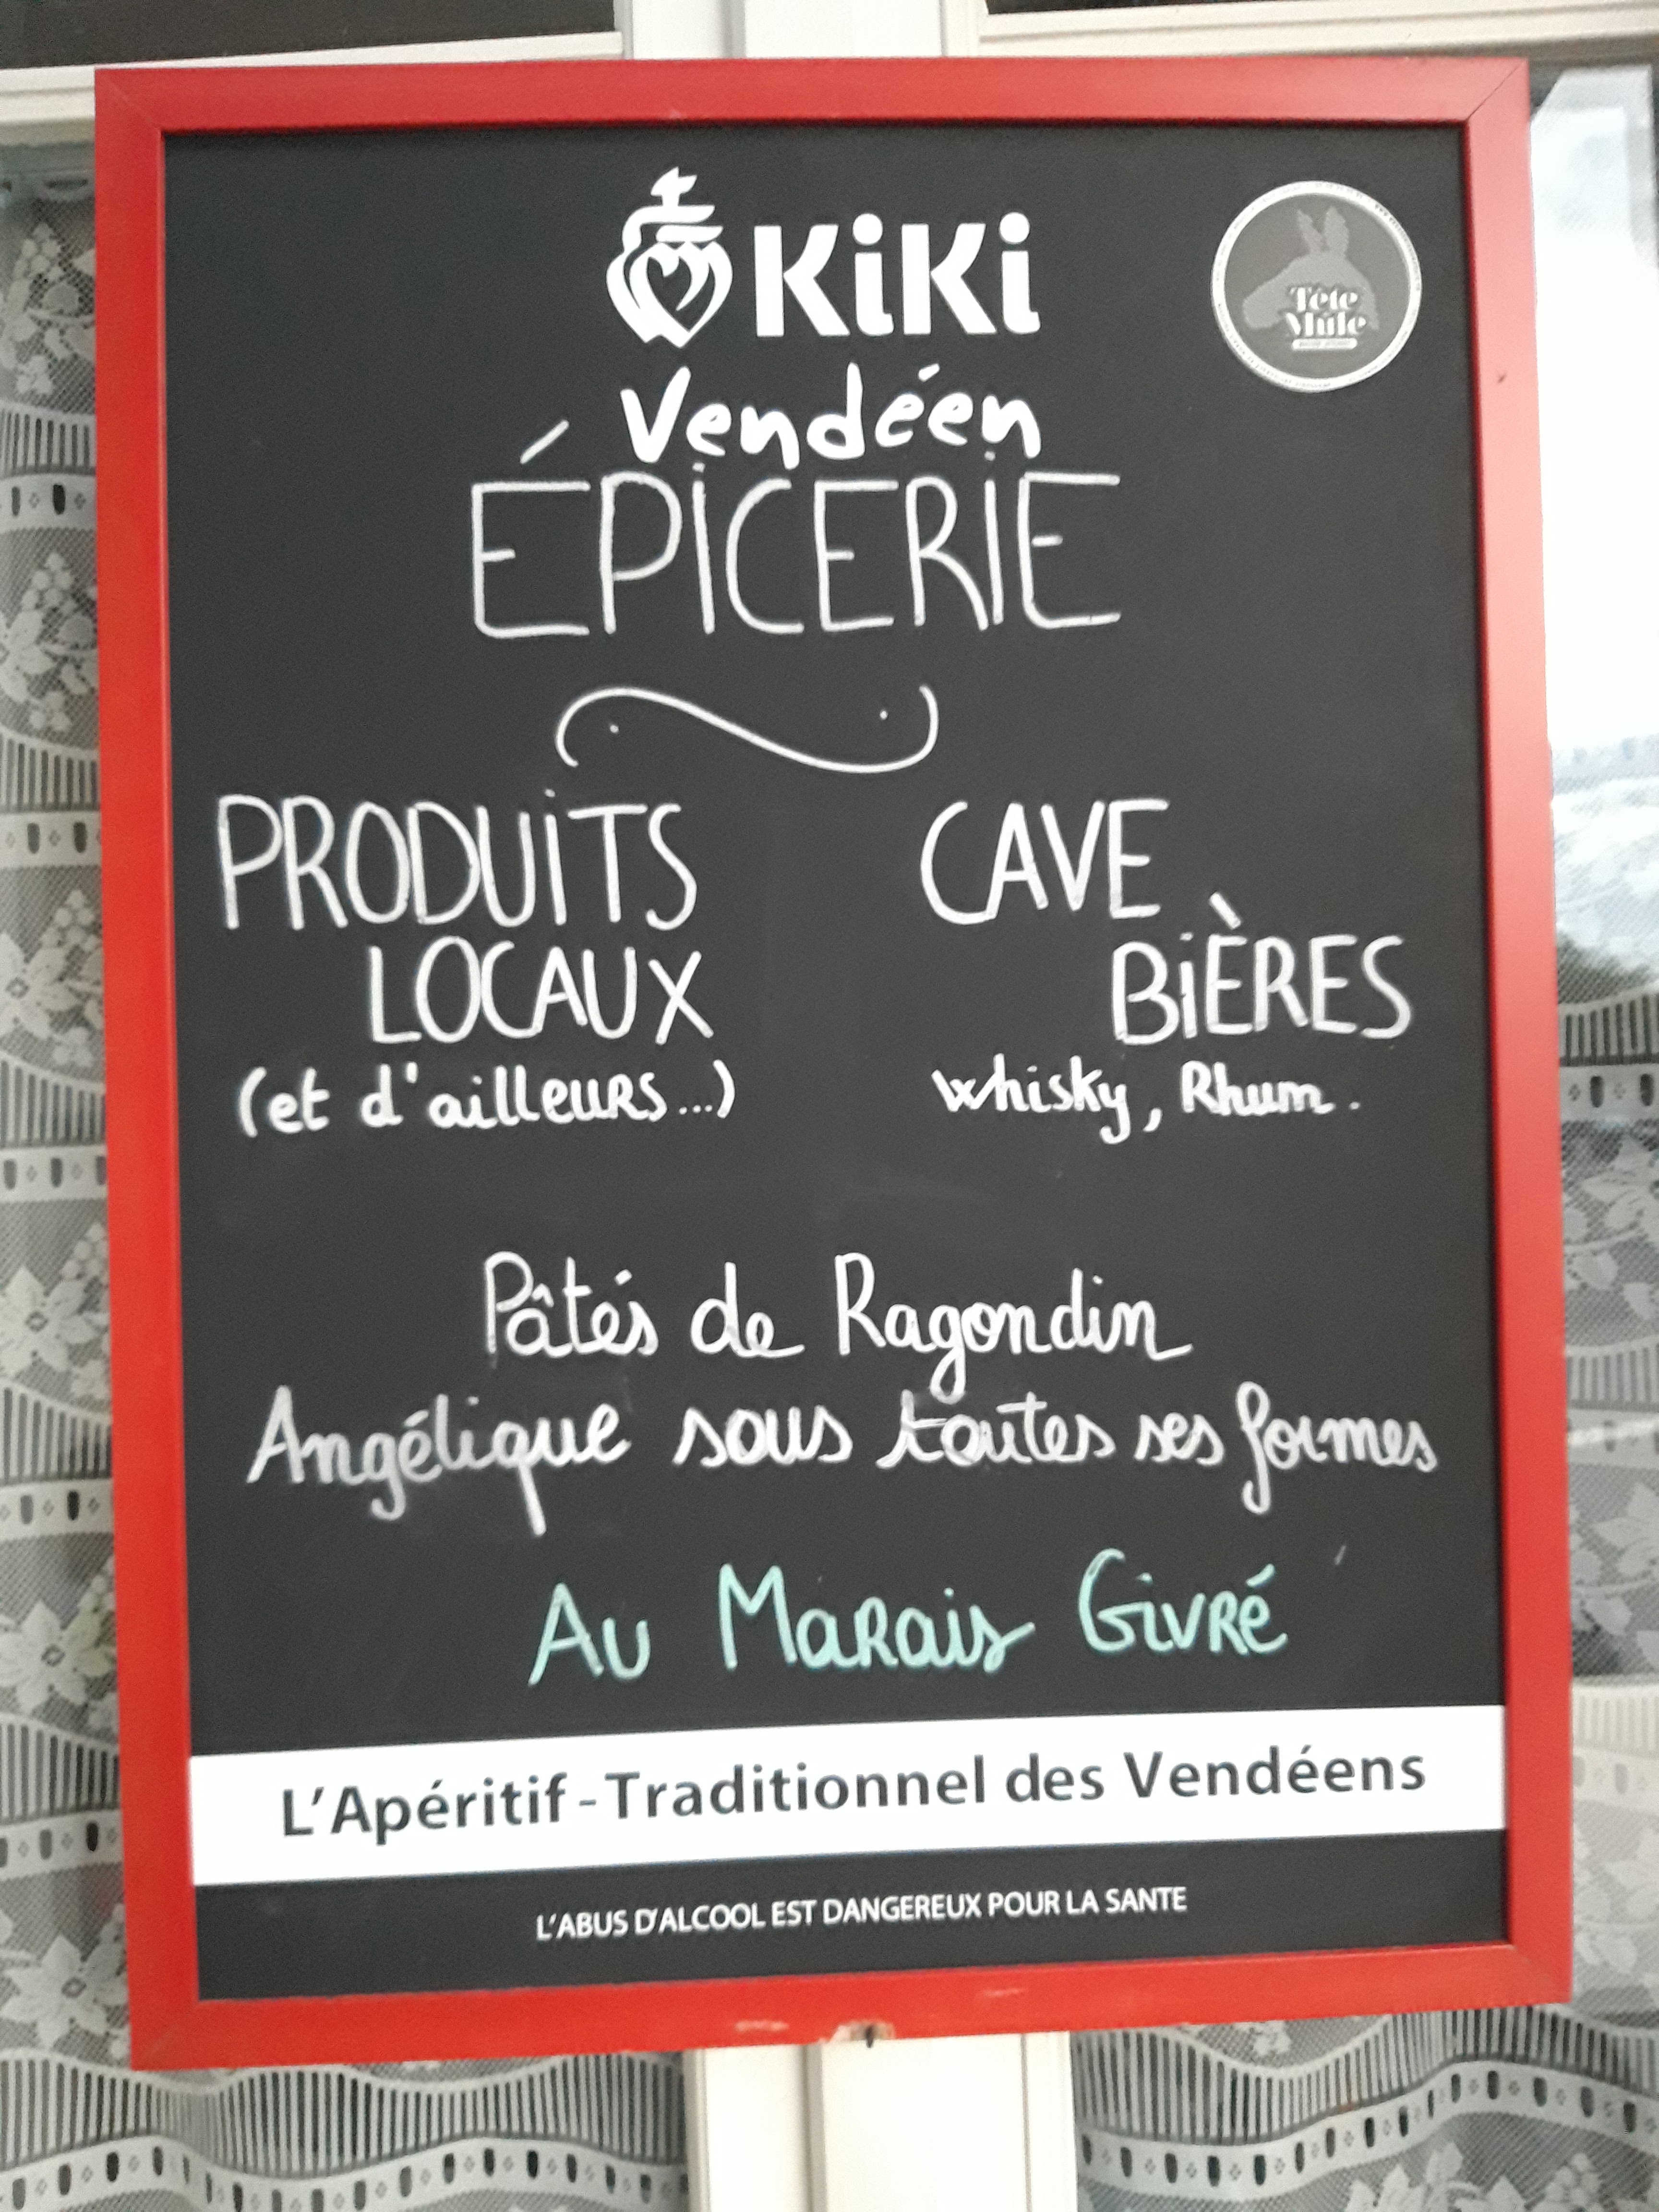 KiKi
Vendéen
Tête
Mule
ÉPICERIE
PRODUITS
LOCAUX
(et d'ailleurs...)
CAVE
BIÈRES
Whisky, Rhum.
Pâtés de Ragondin
Angélique sous toutes ses formes
Au Marais Givré
L'Apéritif-Traditionnel des Vendéens
L'ABUS D'ALCOOL EST DANGEREUX POUR LA SANTE